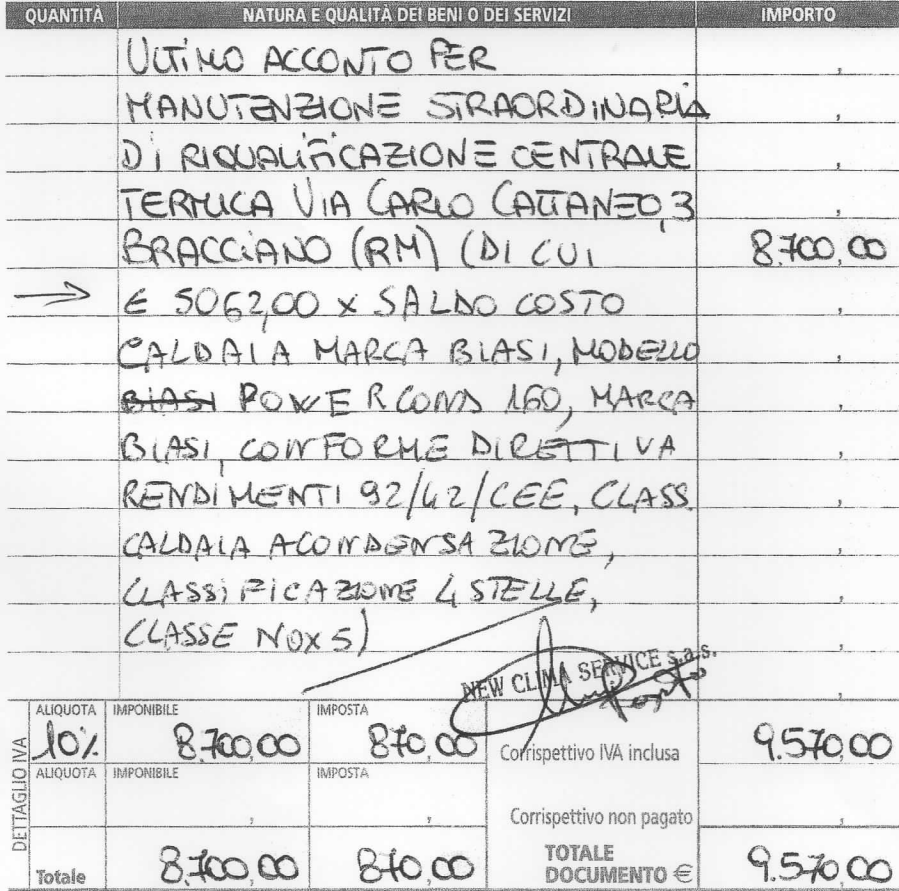 QUANTITÀ NATURA E QUALITÀ DEI BENI O DEI SERVIZI IMPORTO
ULTIMO ACCONTO PER
MANUTENZIONE STRAORDINARIA
DI RIQUALIFICAZIONE CENTRALE
TERMICA VIA CARLO CATTANEO, 3
BRACCIANO (RM) (DI CUI 8.700,00
→ € 5062,00 x SALDO COSTO
CALDAIA MARCA BIASI, MODELLO
BIASI POWER COND 160, MARCA
BIASI, CONFORME DIRETTIVA
RENDIMENTI 92/42/CEE, CLASS.
CALDAIA A CONDENSAZIONE,
CLASSIFICAZIONE 4 STELLE,
CLASSE NOX 5)
NEW CLIMA SERVICE s.a.s.
DETTAGLIO IVA
ALIQUOTA IMPONIBILE IMPOSTA
10% 8.700,00 870,00 Corrispettivo IVA inclusa 9.570,00
ALIQUOTA IMPONIBILE IMPOSTA
Corrispettivo non pagato
Totale 8.700,00 870,00 TOTALE DOCUMENTO € 9.570,00